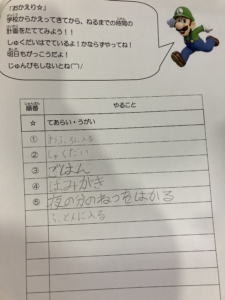 「おかえり☆」
学校からかえってきてから、ねるまでの時間の
計画をたててみよう！！
しゅくだいはでているよ！かならずやってね！
明日もがっこうだよ！
じゅんびもしないとね(⌒▽⌒)ﾉ
順番 やること
☆ てあらい・うがい
① おふろに入る
② しゅくだい
③ ごはん
④ はみがき
⑤ 夜の分のねつをはかる
ふとんに入る